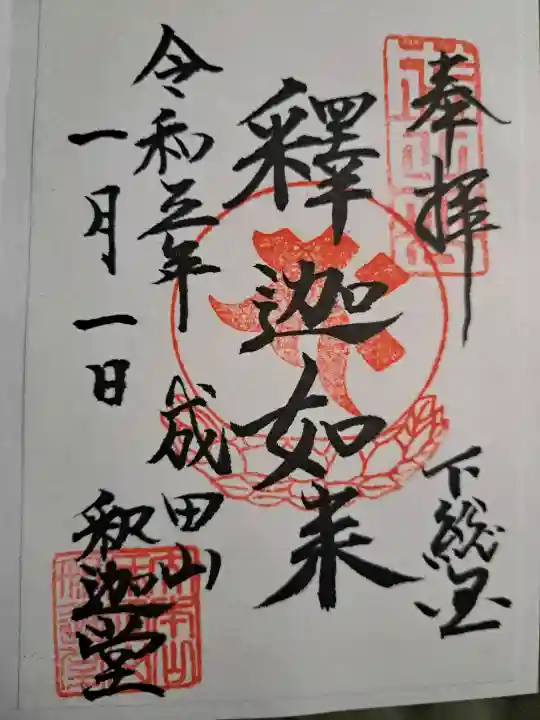 奉拝
下総国
釋迦如来
成田山
釈迦堂
令和五年
一月一日